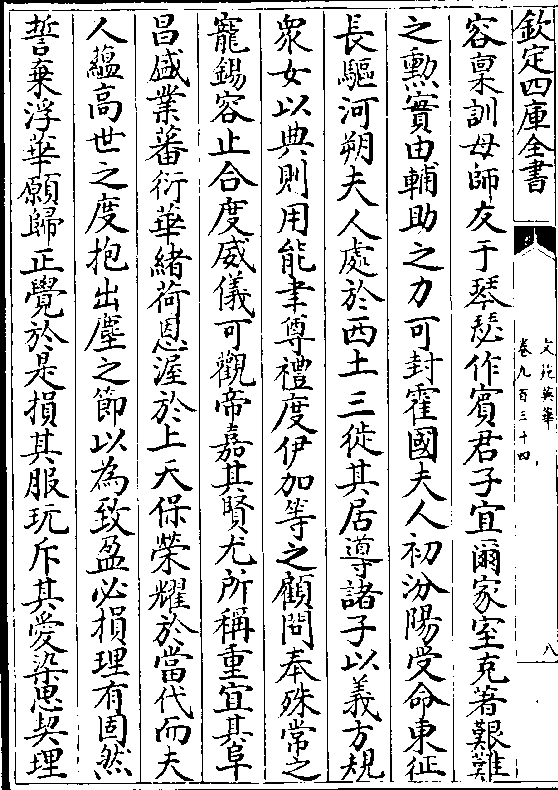 欽定四庫全書
文苑英華
卷九百三十四
八
容稟訓母師友于琴瑟作賓君子宜爾家室克著艱難
之勲實由輔助之力可封霍國夫人初汾陽受命東征
長驅河朔夫人處於西土三徙其居導諸子以義方規
衆女以典則用能聿尊禮度伊加等之顧問奉殊常之
寵錫容止合度威儀可觀帝嘉其賢尤所稱重宜其阜
昌盛業蕃衍華緒荷恩渥於上天保榮耀於當代而夫
人藴高世之度抱出塵之節以為致盈必損理有固然
誓棄浮華願歸正覺於是損其服玩斥其愛染思契理